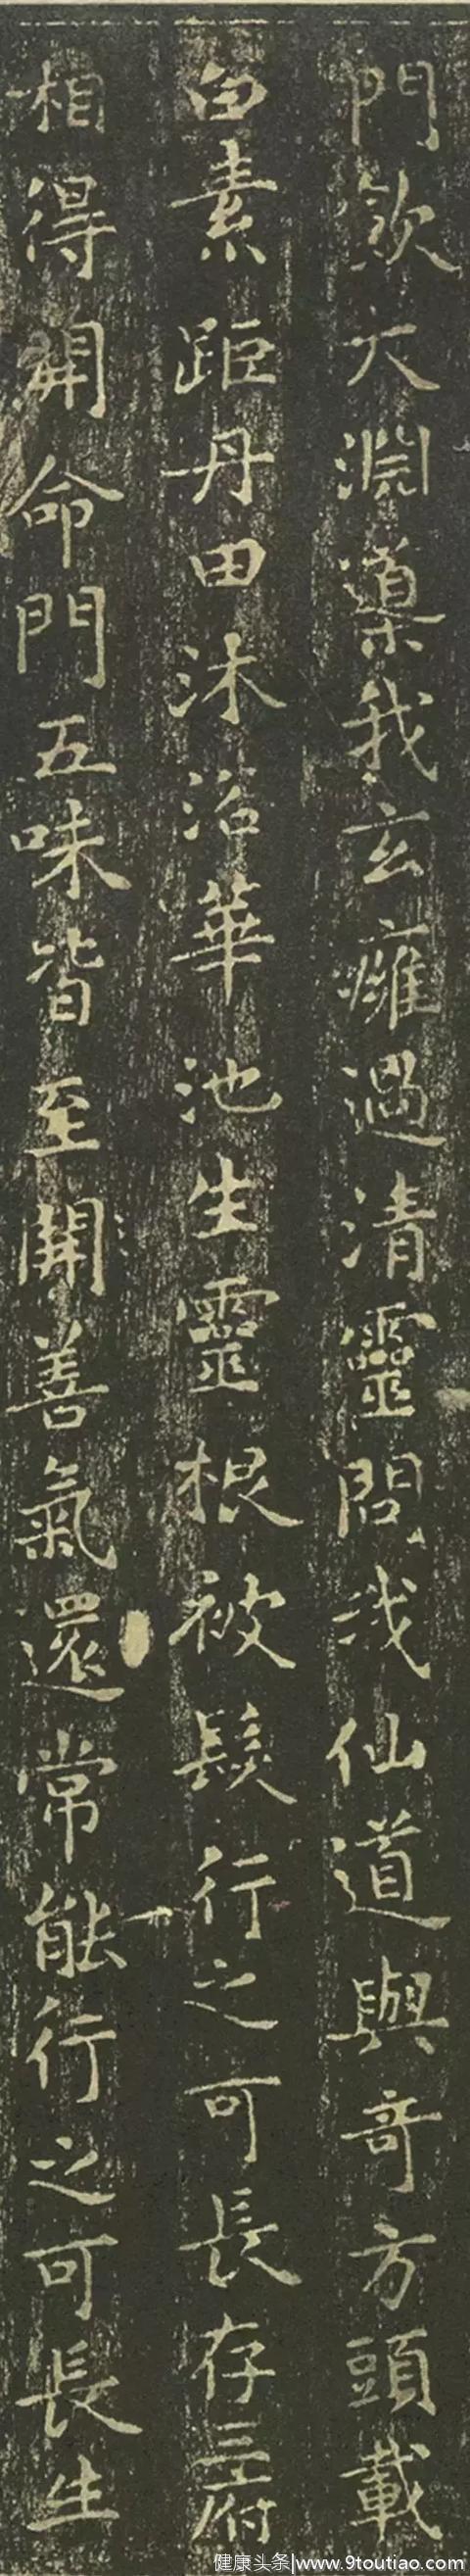 門飲大淵導我玄癰過清靈問我仙道與奇方頭載
白素距丹田沐浴華池生靈根被髮行之可長存三府
相得開命門五味皆至開善氣還常能行之可長生
健康头条|www.9toutiao.com